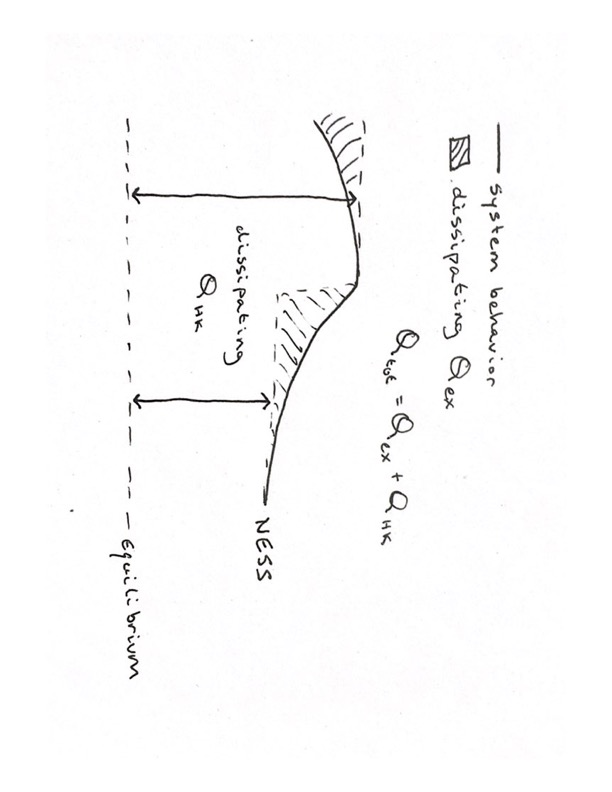 system behavior
dissipating Q_ex
Q_tot = Q_ex + Q_HK
dissipating
Q_HK
NESS
Equilibrium